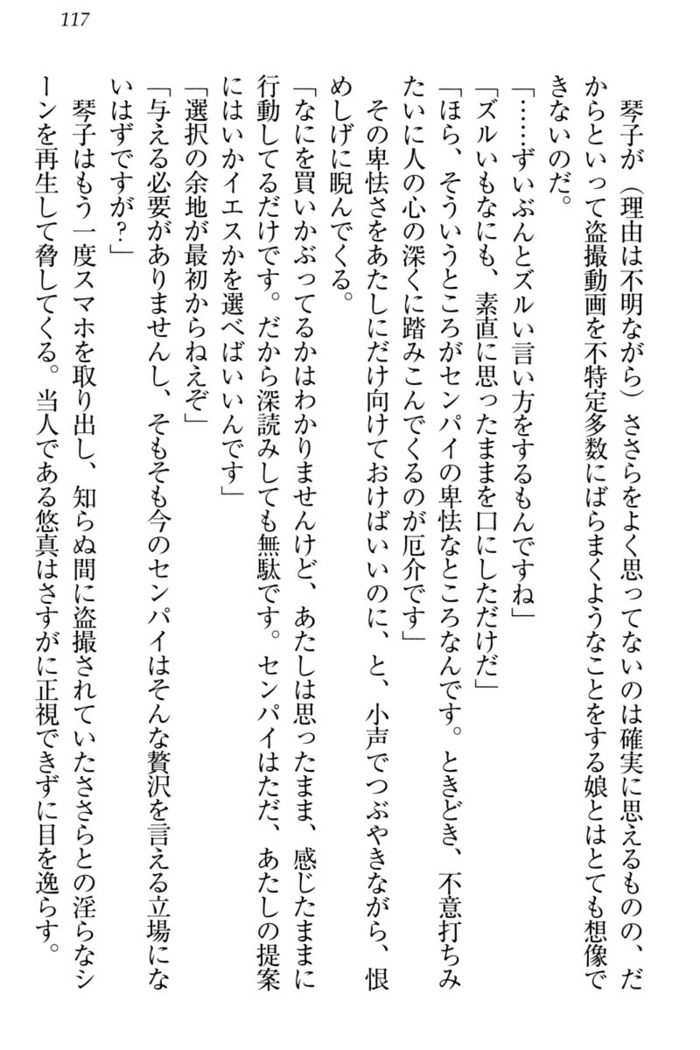 117
琴子が（理由は不明ながら）ささらをよく思ってないのは確実に思えるものの、だ
からといって盗撮動画を不特定多数にばらまくようなことをする娘とはとても想像で
きないのだ。
「……ずいぶんとズルい言い方をするもんですね」
「ズルいもなにも、素直に思ったままを口にしただけだ」
「ほら、そういうところがセンパイの卑怯なところなんです。ときどき、不意打ちみ
たいに人の心の深くに踏みこんでくるのが厄介です」
その卑怯さをあたしにだけ向けておけばいいのに、と、小声でつぶやきながら、恨
めしげに睨んでくる。
「なにを買いかぶってるかはわかりませんけど、あたしは思ったまま、感じたままに
行動してるだけです。だから深読みしても無駄です。センパイはただ、あたしの提案
にはいかイエスかを選べばいいんです」
「選択の余地が最初からねえぞ」
「与える必要がありませんし、そもそも今のセンパイはそんな贅沢を言える立場にな
いはずですが？」
琴子はもう一度スマホを取り出し、知らぬ間に盗撮されていたささらとの淫らなシ
ーンを再生して脅してくる。当人である悠真はさすがに正視できずに目を逸らす。